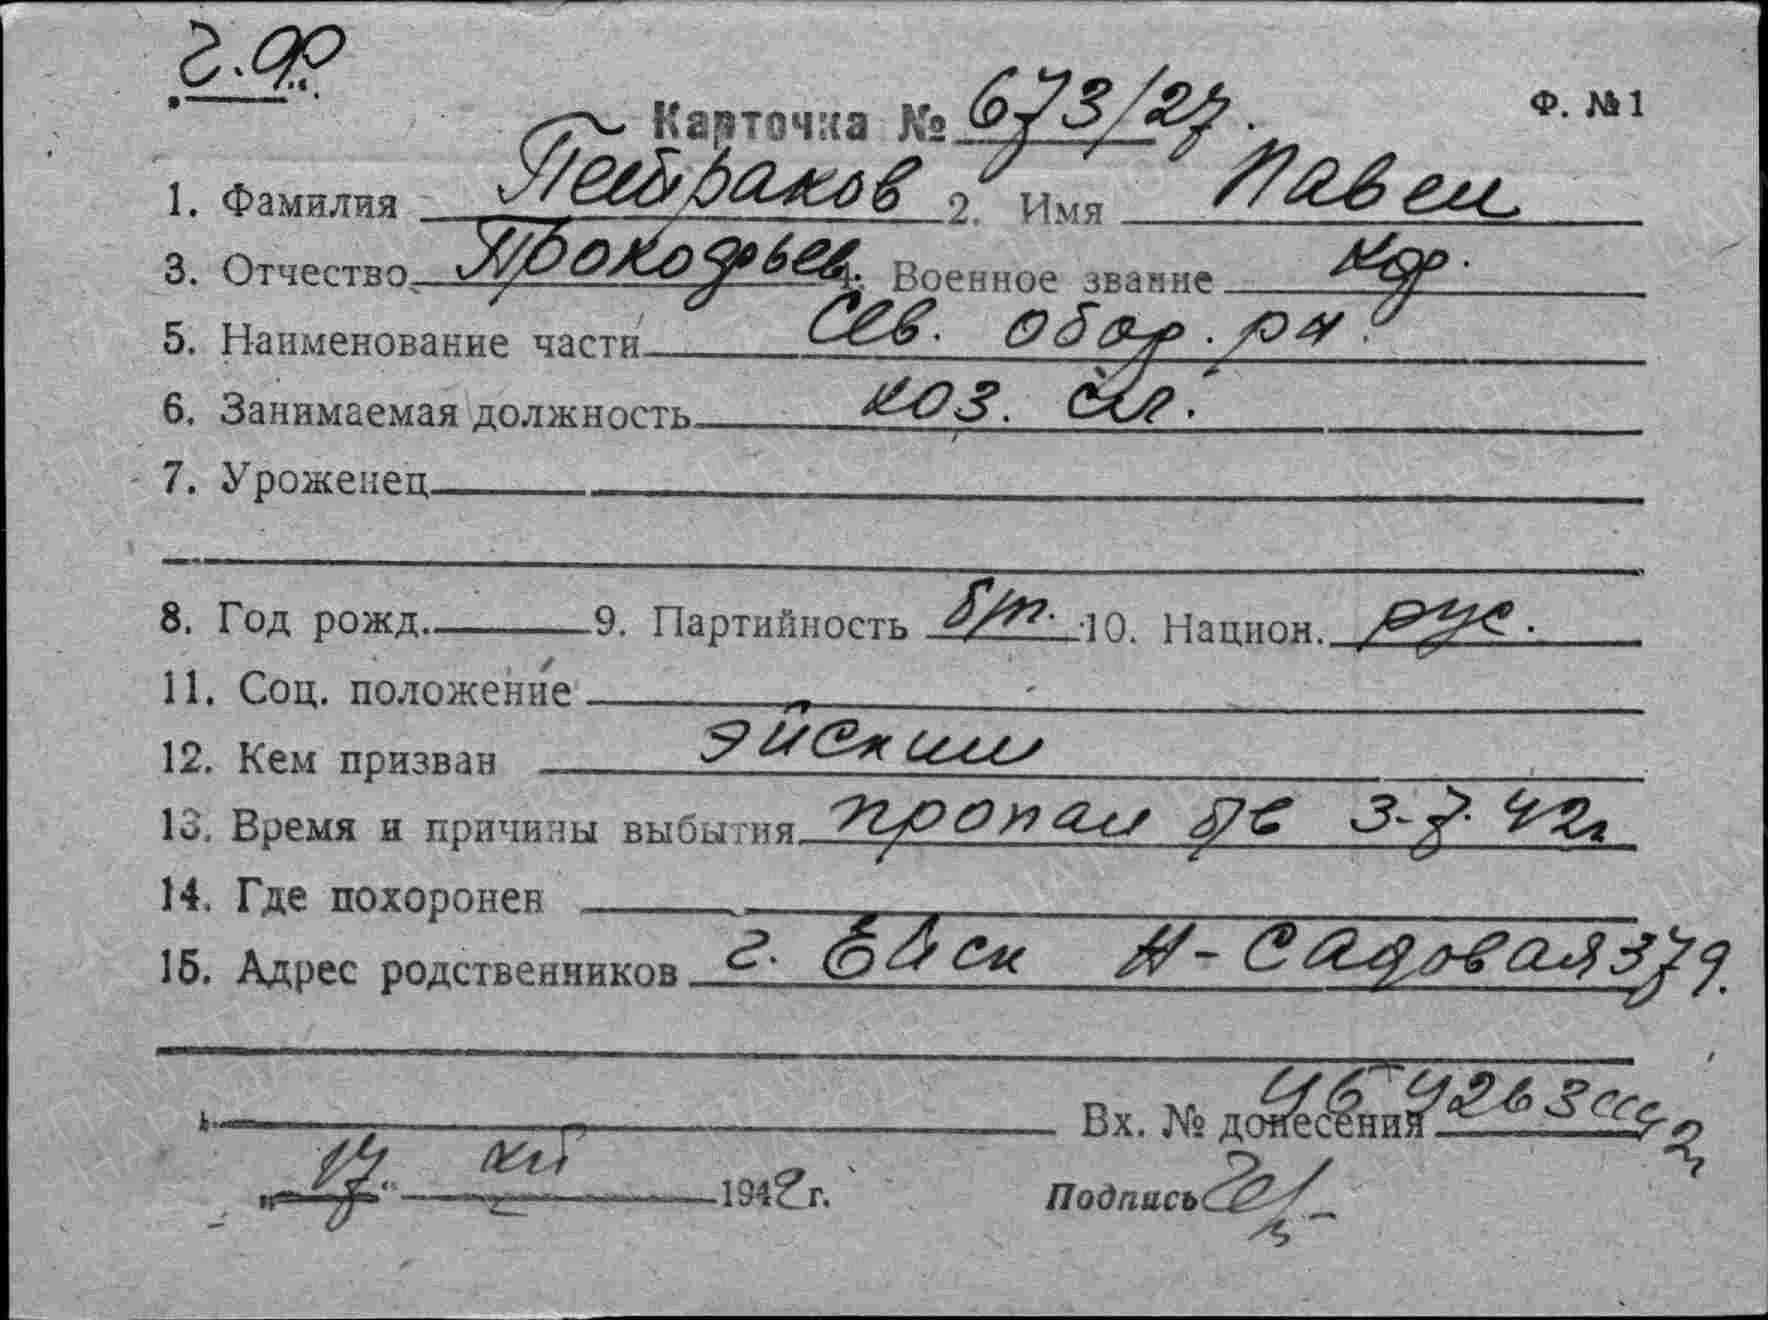 Ф. №1
Карточка № 673/27.
1. Фамилия Петраков 2. Имя Павел
3. Отчество Прокофьев. 4. Военное звание кр.
5. Наименование части Сев. обор. рн.
6. Занимаемая должность
7. Уроженец
8. Год рожд. 9. Партийность б/п. 10. Национ. рус.
11. Соц. положение
12. Кем призван Эйским
13. Время и причины выбытия пропал 3-7. 42г
14. Где похоронен
15. Адрес родственников г. Ейск Н-Садовая 379.
Вх. № донесения
„17“ XII 1942 г. Подпись